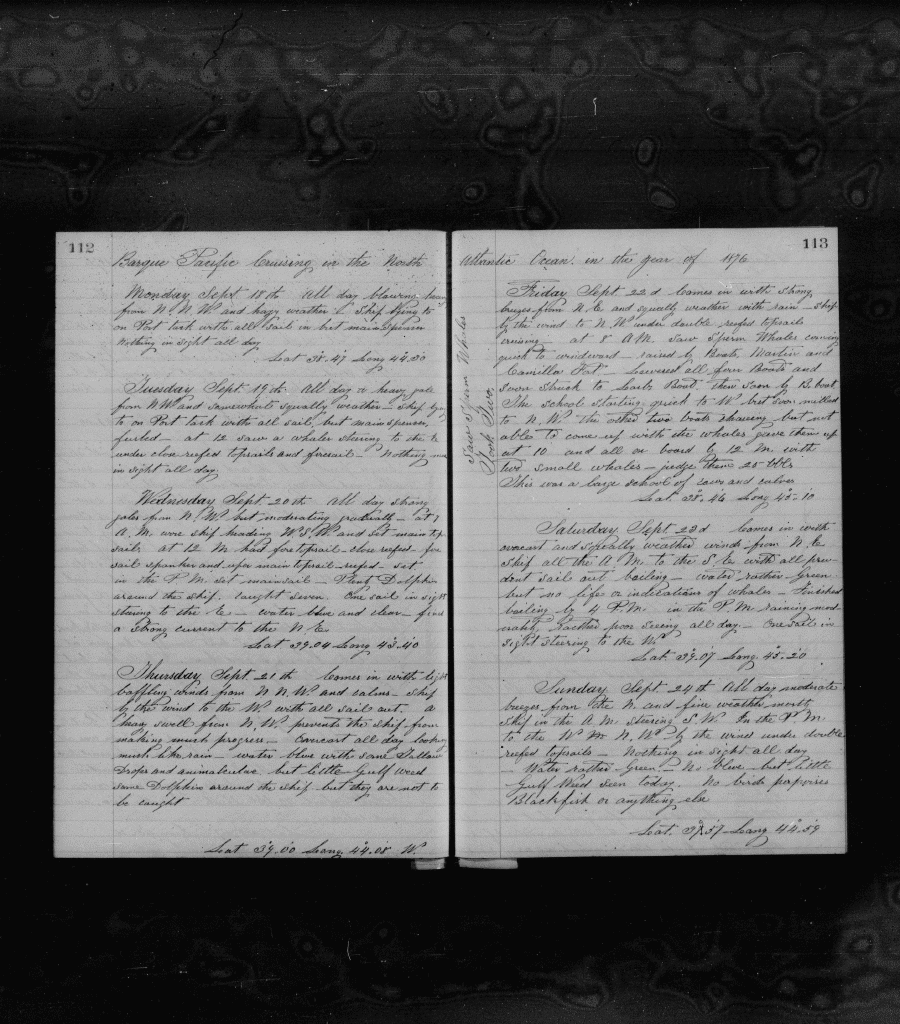 112
Barque Pacific Cruising in the North
Monday Sept 18th All day blowing heavy
from N.N.W. and hazy weather Ship lying to
on Port tack with all sail in but main spencer
Nothing in sight all day
Lat 38.47 Long 44.30
Tuesday Sept. 19th All day a heavy gale
from N.W. and somewhat squally weather - ship lying
to on Port tack with all sail, but main spencer,
furled - at 12 saw a whaler steering to the E
under close reefed topsails and foresail - Nothing
in sight all day
Wednesday Sept. 20th All day strong
gales from N.W. but moderating gradually - at 7
A.M. wore ship heading W.S.W. and set main top
sail. at 12 M. had fore topsail close reefed - fore
sail spanker and main topsail reefed - set
in the P.M. set mainsail - Plenty Dolphin
around the ship. Caught seven. One sail in sight
steering to the E - water blue and clear - find
a strong current to the N.E.
Lat 39.04 Long 43.40
Thursday Sept. 21th Comes in with light
baffling winds from N.N.W. and calms - ship
by the wind to the W. with all sail out. a
heavy swell from N.W. prevents the ship from
making much progress - Overcast all day looking
much like rain - water blue with some Tallow
Drops and animalculae but little Gulf weed
some Dolphins around the ship but they are not to
be caught
Lat 39.00 Long 44.08 W.
113
Atlantic Ocean in the year of 1876
Saw Sperm Whales
Took Two
Friday Sept. 22d Comes in with strong
breezes from N.E. and squally weather with rain - ship
by the wind to N.W. under double reefed topsails
cruising - at 8 A.M. saw Sperm Whales coming
quick to windward - raised by Martin and
Camillor - Lowered all four Boats and
soon Struck to Larb. Boat, then soon by B. boat
The school starting quick to W. but soon milled
to N.W. the other two boats chasing but not
able to come up with the whales gave them up
at 10 and all on board by 12 M. with
two small whales - judge them 25 bbls
This was a large school of cows and calves
Lat. 38.46 Long 45.10
Saturday Sept 23d Comes in with
overcast and squally weather winds from N.E.
Ship all the A.M. to the S.E. with all pru-
dent sail out boiling - water rather Green
but no life or indications of whales - Finished
boiling by 4 P.M. in the P.M. raining mod-
erately. Rather poor seeing all day - One sail in
sight steering to the W.
Lat. 39.07 Long 45.20
Sunday Sept. 24th All day moderate
breezes from the N. and fine weather
Ship in the A.M. steering S.W. In the P.M.
to the W.N.W. by the wind under double
reefed topsails - Nothing in sight all day
- Water rather Green - No blue but little
Gulf Weed seen today. No birds porpoises
Blackfish or anything else
Lat. 37.57 Long 44.59